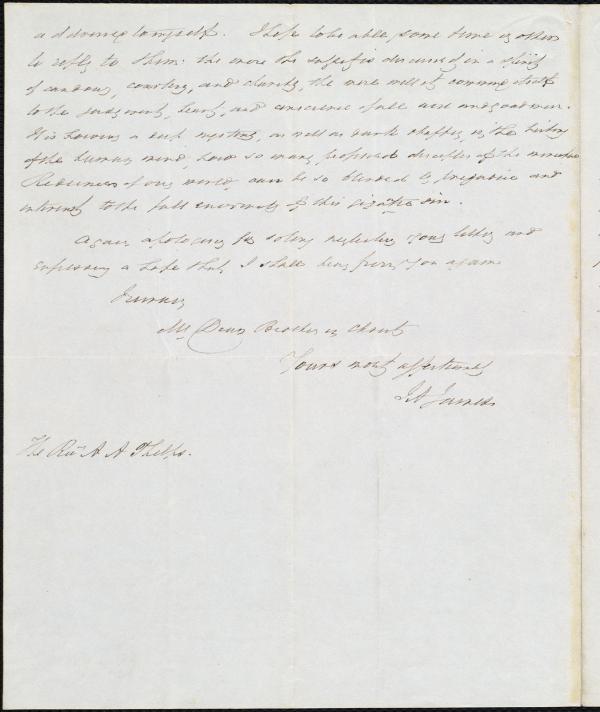 addressed to myself. I hope to be able some time or other
to reply to them: the more the subject is discussed in a spirit
of candour, courtesy, and charity, the more will it commend itself
to the judgment, heart, and conscience of all wise and good men.
It is however a deep mystery, as well as dark chapter, in the history
of the human mind, how so many professed disciples of the
Redeemer of our world, can be so blinded by prejudice and
interest to the full enormity of this gigantic sin.
Again apologising for so long neglecting your letter and
expressing a hope that I shall hear from you again
I remain
My Dear Brother in Christ
Yours most affectionately
J A James
The Revd A A Phelps.